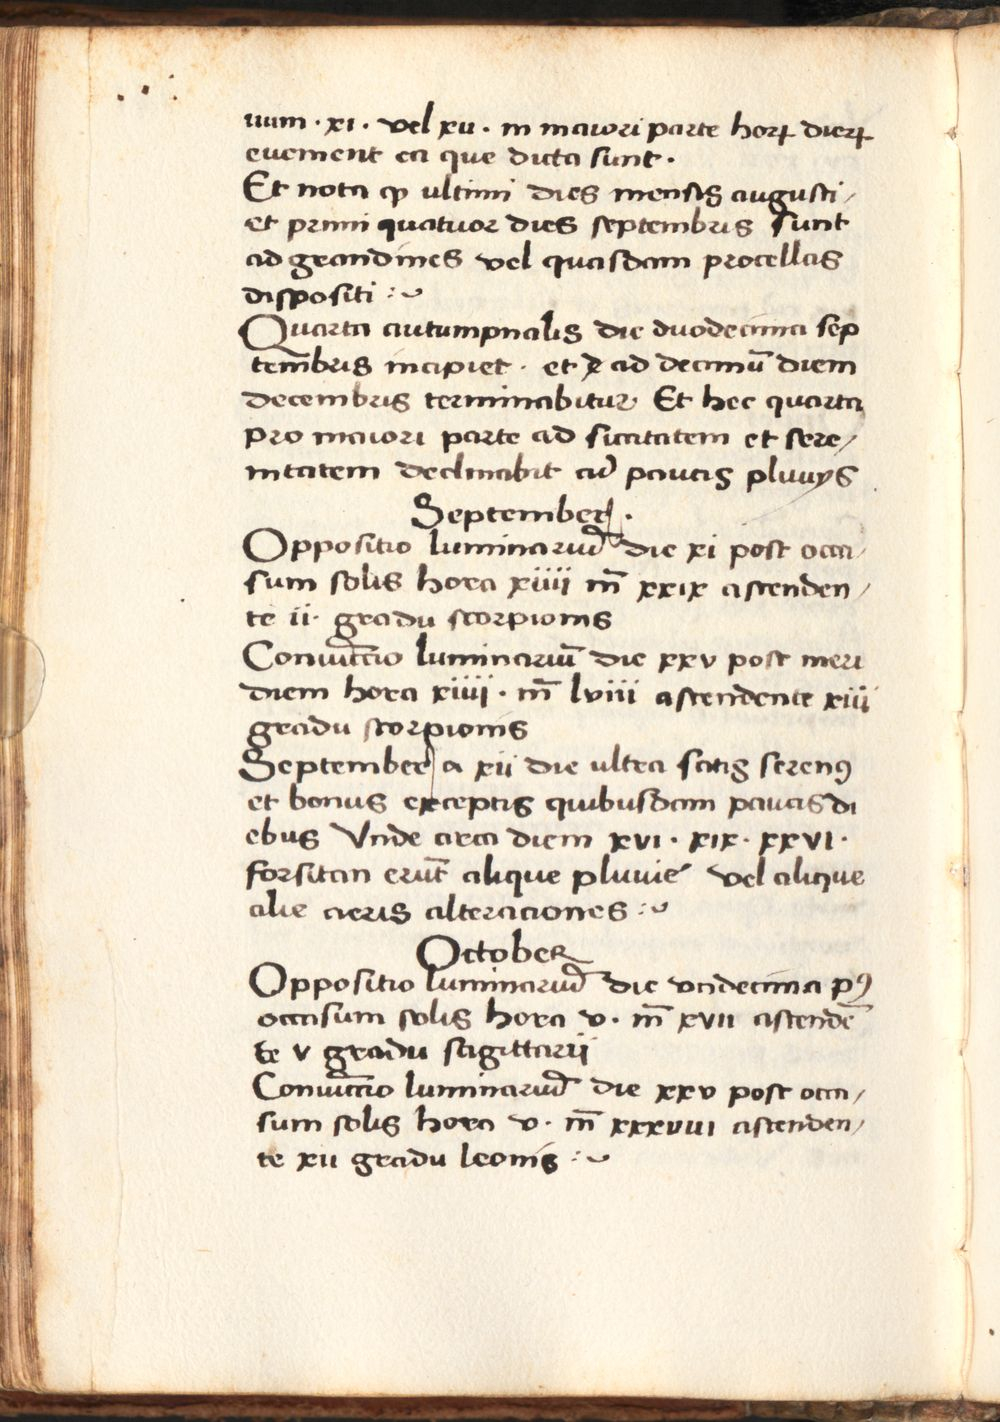 uum · xi · vel xii · in maiori parte horꝝ dierꝝ
evenient ea que dicta sunt ·
Et nota ꝙ ultimi dies mensis augusti /
et primi quatuor dies septembris sunt
ad grandines vel quasdam procellas
dispositi :~
Quarta autumpnalis die duodecima sep
tem̄bris incipiet · et ad decimū diem
decembris terminabitur Et hec quarta
pro maiori parte ad siccitatem et sere /
nitatem declinabit cū paucis pluuijs
September ·
Oppositio luminariū die xi post occa /
sum solis hora xiiii m̄ xxix ascenden /
te ii · gradu scorpionis
Coniūctio luminariū die xxv post meri
diem hora xiiii · m̄ lviii ascendente xiii
gradu scorpionis
September a xii die ultra satis serenꝰ
et bonus exceptis quibusdam paucis di
ebus Vnde circa diem xvi · xix · xxvi ·
forsitan erūt alique pluuie vel alique
alie aeris alteraciones :~
October
Oppositio luminariū die vndecima pꝰ
occasum solis hora v · m̄ xvii ascendē
te v gradu sagittarii
Coniūctio luminariū die xxv post occa /
sum solis hora v · m̄ xxxviii ascenden /
te xii gradu leonis :~